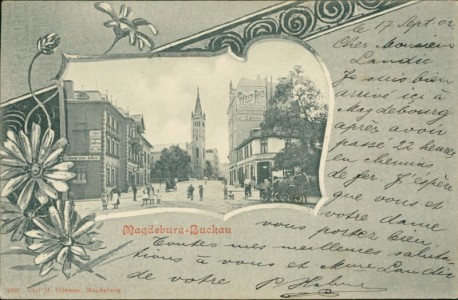 le 17 Sept. 02
Cher Monsieur
Landu
Je suis bien
arrivé ici à
Magdebourg
après avoir
passé 22 heures
en chemins
de fer J'éspère
que vous et
votre dame
vous portez bien
Magdeburg-Buckau
Toutes mes meilleures saluta-
tions à vous et Mme Landu
de votre
Magdeburg